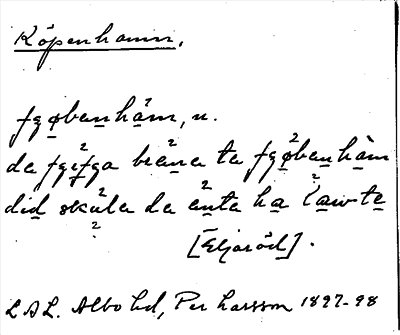 Köpenhamn,
fqøbenhåm, n.
de fqifqa biena te fqøbenhåm
did skule de ente ha lawte
[Eljaröd].
LAL. Albo hd, Per Larsson 1897-98